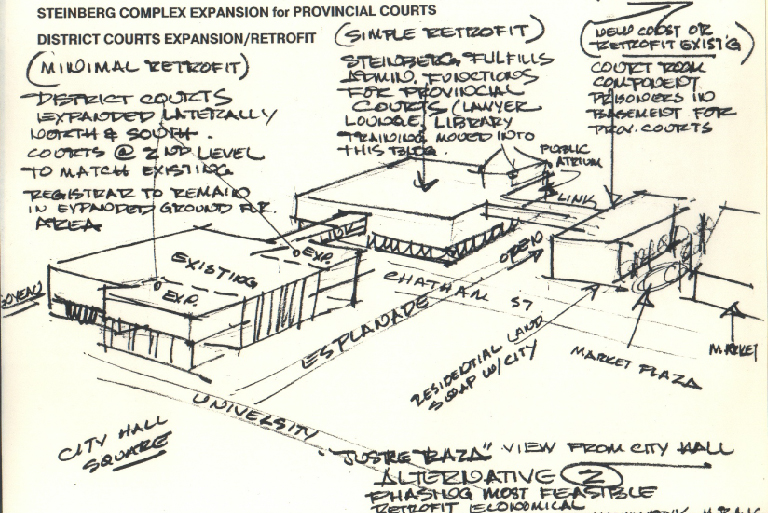 STEINBERG COMPLEX EXPANSION for PROVINCIAL COURTS
DISTRICT COURTS EXPANSION/RETROFIT
(MINIMAL RETROFIT)
DISTRICT COURTS
EXPANDED LATERALLY
NORTH & SOUTH.
COURTS @ 2ND LEVEL
TO MATCH EXISTING
REGISTRAR TO REMAIN
IN EXPANDED GROUND FLR.
AREA
(SIMPLE RETROFIT)
STEINBERG FULFILLS
ADMIN. FUNCTIONS
FOR PROVINCIAL
COURTS (LAWYER
LOUNGE, LIBRARY
TRAINING MOVED INTO
THIS BLDG.
(NEW CONST OR
RETROFIT EXIST'G)
COURT ROOM
COMPONENT
PRISONERS IN
BASEMENT FOR
PROV. COURTS
PUBLIC
ATRIUM
LINK
LINK
EXISTING
EXP.
EXP.
OPEN
CHATHAM ST
ESPLANADE
RESIDENTIAL LAND
SWAP W/CITY
MARKET PLAZA
MARKET
UNIVERSITY
CITY HALL
SQUARE
"JUSTICE PLAZA" VIEW FROM CITY HALL
ALTERNATIVE 2
PHASING MOST FEASIBLE
RETROFIT ECONOMICAL